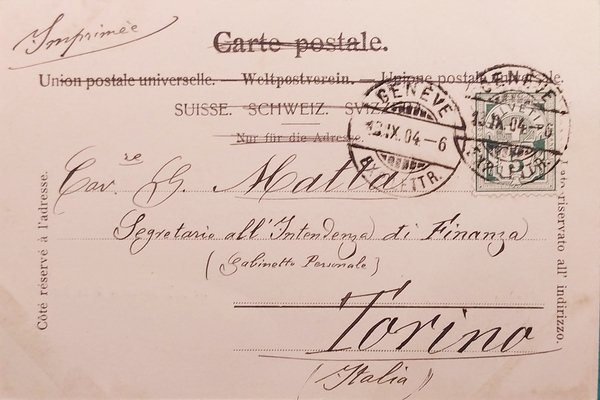 Imprimée
Carte postale.
Union postale universelle. — Weltpostverein. — Unione postale universale.
SUISSE. SCHWEIZ. SVIZZERA.
Nur für die Adresse.
GENÈVE
13.IX.04-6
EXP. LETTR.
GENÈVE
13.IX.04-6
EXP. LETTR.
5
Cav.re G. Mattia
Segretario all'Intendenza di Finanza
(Gabinetto Personale)
Torino
(Italia)
Côté réservé à l'adresse.
Lato riservato all' indirizzo.